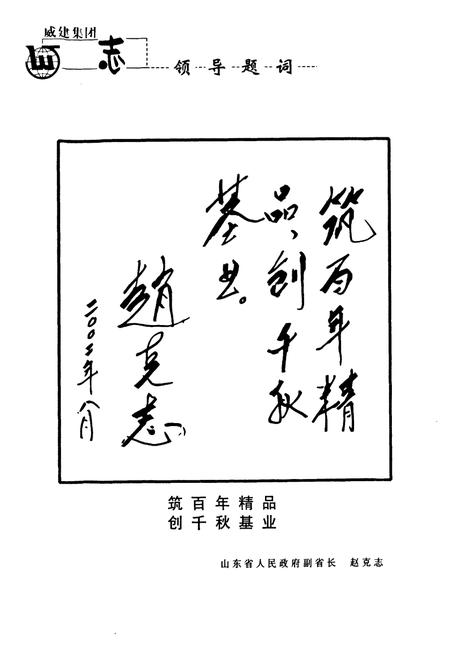 威建集团
志
领导题词
筑百年精
品、创千秋
基业。
赵克志
二〇〇二年八月
筑百年精品
创千秋基业
山东省人民政府副省长 赵克志